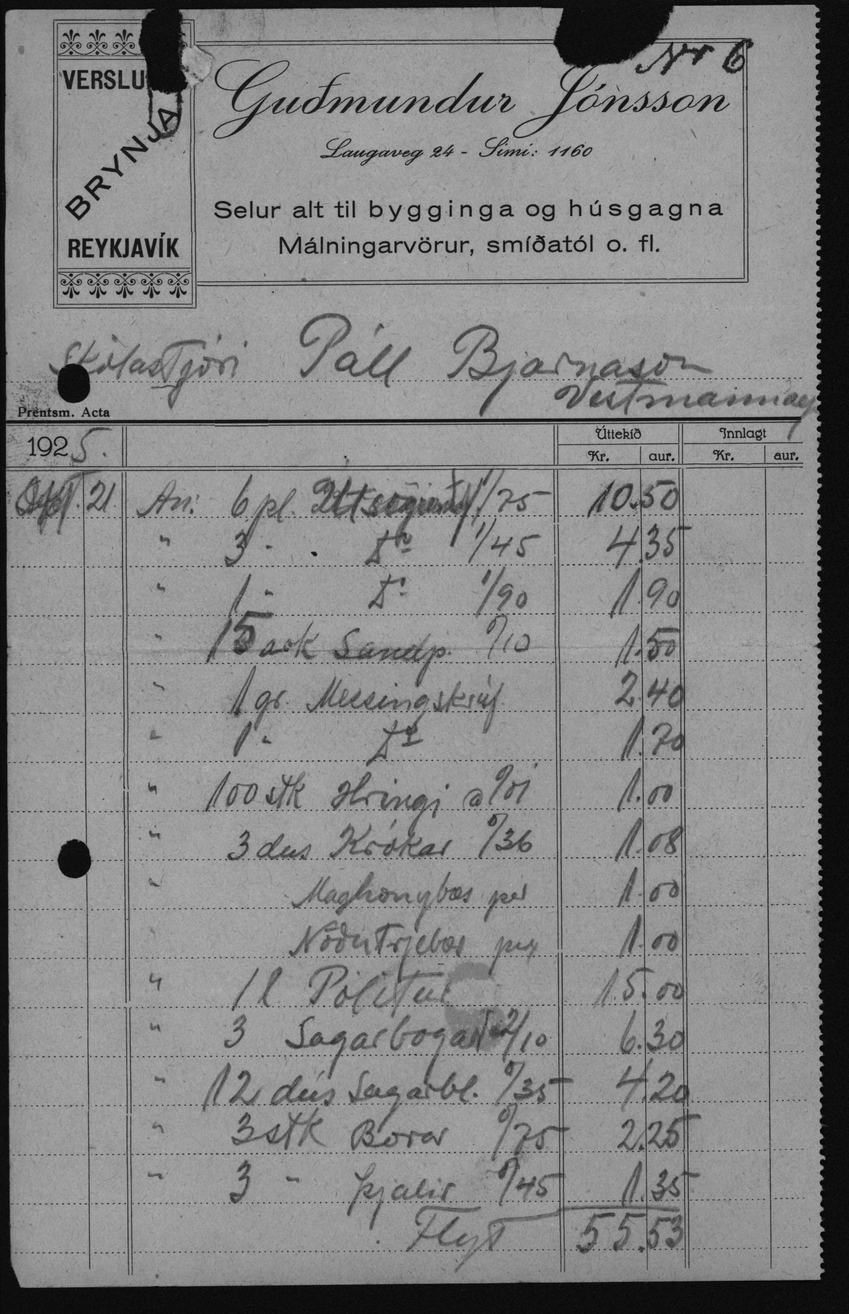 Nr 6
VERSLU
BRYNJA
REYKJAVÍK
Guðmundur Jónsson
Laugaveg 24 - Sími: 1160
Selur alt til bygginga og húsgagna
Málningarvörur, smíðatól o. fl.
Skólastjóri Páll Bjarnason
Vestmannaey
Prentsm. Acta
1925. Úttekið Innlagt
Kr. aur. Kr. aur.
21 An: 6 pl. 1/75 10.50
" 3 " Do 1/45 4.35
" 1 " Do 1/90 1.90
" 15 ark Sandp. 0/10 1.50
" 1 gr. Messingskrúf 2.40
" 1 " Do 1.70
" 100 stk Hringj a 0/01 1.00
" 3 dus Krókar 0/36 1.08
" Maghonybæs 1.00
Trjebæs 1.00
" 1 l Politur 15.00
" 3 Sagarbogar 2/10 6.30
" 12 dús Sagarbl. 0/35 4.20
" 3 stk Borar 0/75 2.25
" 3 " Þjalir 0/45 1.35
Flyt 55.53